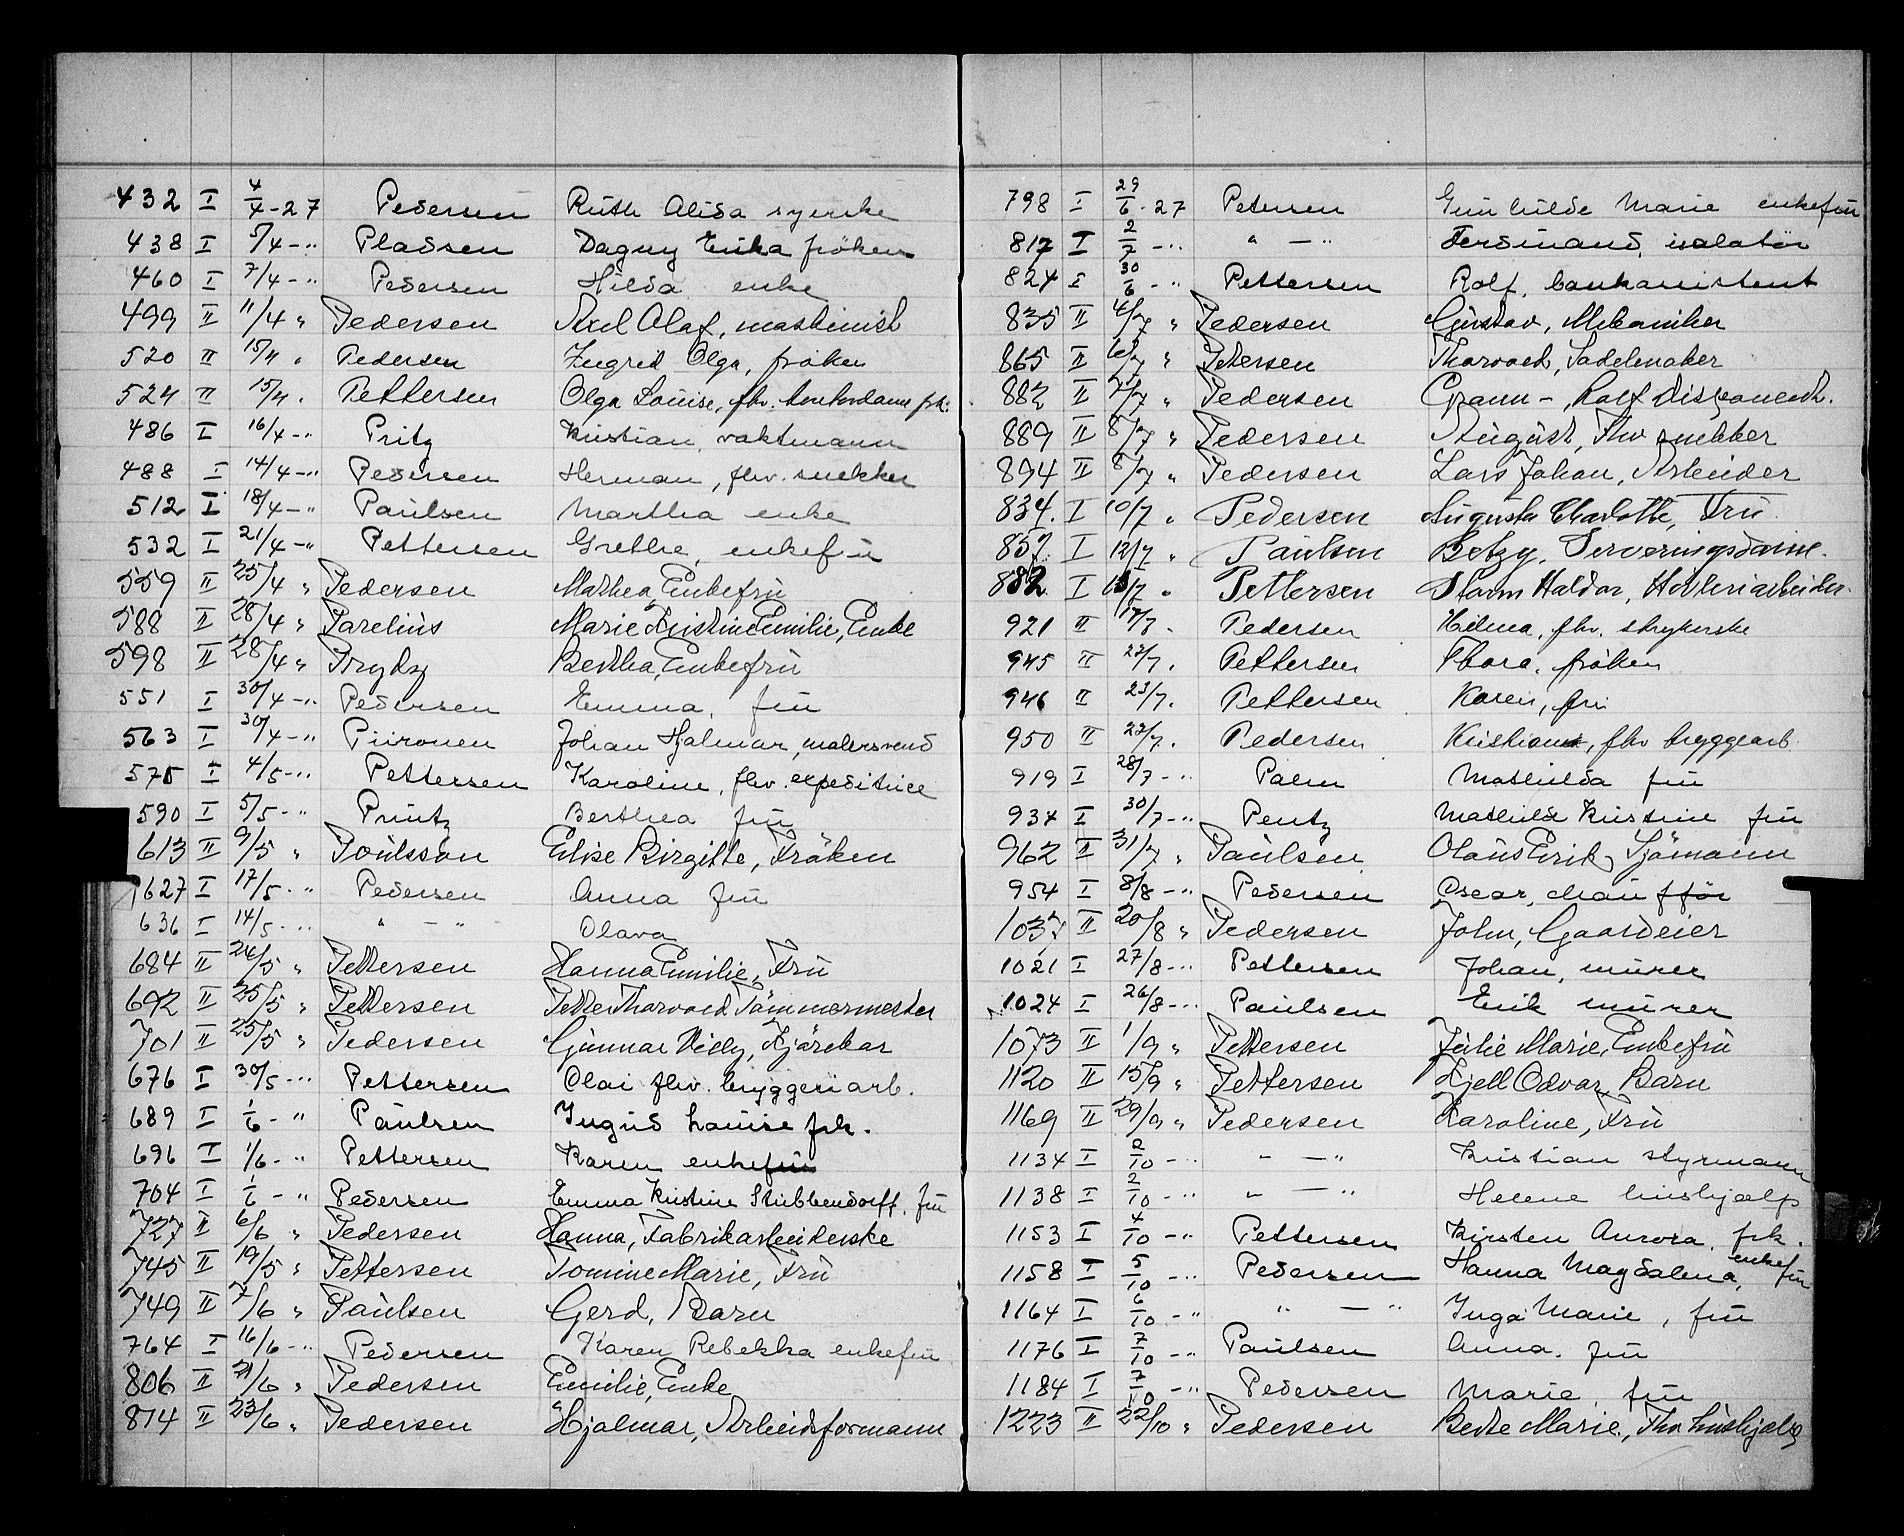 432 I 4/4-27 Pedersen Ruth Alida syerske
438 I 5/4 -" Pladsen Dagny Erika fröken
460 I 7/4 -" Pedersen Hilda enke
499 II 11/4 " Pedersen Axel Olaf, maskinist
520 II 15/4 " Pedersen Ingrid Olga, fröken
524 II 15/4 " Pettersen Olga Louise, fhv. kontordame frk.
486 I 16/4 -" Pritz Kristian vaktmann
488 I 14/4 -" Pedersen Herman, fhv. snekker
512 I 18/4 -" Paulsen Martha enke
532 I 21/4 -" Pettersen Grethe, enkefru
559 II 25/4 " Pedersen Mathea, Enkefru
588 II 28/4 " Parelius Marie Kristine Emilie, Enke
598 II 28/4 " Prydz Bertha, Enkefru
551 I 30/4 -" Pedersen Emma, fru
563 I 30/4 -" Piironen Johan Hjalmar, malersvend
575 I 4/5 -" Pettersen Karoline, fhv. expeditrice
590 I 5/5 -" Printz Berthea fru
613 II 9/5 " Poulsson Elise Birgitte, Fröken
627 I 17/5 -" Pedersen Anna fru
636 I 14/5 -" " — " Olava
684 II 24/5 " Pettersen Hanna Emilie, Fru
692 II 25/5 " Pettersen Petter Thorvald Tömmermester
701 II 25/5 " Pedersen Gunnar Villy, Kjörekar
676 I 30/5 -" Pettersen Olai fhv. bryggeriarb.
689 I 1/6 -" Paulsen Ingrid Louise frk.
696 I 1/6 -" Pettersen Karen enkefru
704 I 1/6 -" Pedersen Emma Kristine Stubbendorff, fru
727 II 6/6 " Pedersen Hanna, Fabrikarbeiderske
745 II 19/5 " Pettersen Tomine Marie, Fru
749 II 7/6 " Paulsen Gerd, Barn
764 I 16/6 -" Pedersen Karen Rebekka enkefru
806 II 21/6 " Pedersen Emilie, Enke
814 II 23/6 " Pedersen Hjalmar, Arbeidsformann
798 I 29/6-27 Petersen Gunhilde Marie enkefru
812 I 2/7 -" " — " Ferdinand, isolatör
824 I 30/6 -" Pettersen Rolf, bankassistent
835 II 4/7 " Pedersen Gustav, Mekaniker
865 II 6/7 " Petersen Thorvald, Sadelmaker
882 II 7/7 " Pedersen Grann-, Rolf disponent.
889 II 8/7 " Pedersen August, Fhv snekker
894 II 8/7 " Pedersen Lars Johan, Arbeider
834. I 10/7 " Pedersen Augusta Charlotte, Fru
857. I 12/7 " Paulsen Betzy, Serveringsdame.
882. I 13/7 " Pettersen Storm Haldor, Hövleriarbeider.
921 II 17/7 " Pedersen Hilma, fhv. strykerske
945 II 22/7. Pettersen Thora, fröken
946 II 23/7. Pettersen Karen, fru
950 II 22/7. Pedersen Kristian, fhv bryggearb.
919 I 28/7 -" Palm Mathilda fru
934 I 30/7 -" Pentz Mathilde Kristine fru
962 II 31/7 " Paulsen Olaus Erik, Sjömann
954 I 8/8 -" Pedersen Oscar, chaufför
1037 II 20/8 " Pedersen John, Gaardeier
1021 I 27/8 -" Pettersen Johan, murer
1024 I 26/8 -" Paulsen Erik murer
1073 II 1/9 " Pettersen Julie Marie, Enkefru
1120 II 15/9 " Pettersen Kjell Odvar, Barn
1169 II 29/9 " Pedersen Karoline, Fru
1134 I 2/10 -" " — " Kristian styrmann
1138 I 2/10 -" " — " Helene hushjælp
1153 I 4/10 -" Pettersen Kirsten Aurora, frk.
1158 I 5/10 -" Pedersen Hanna Magdalena, enkefru
1164 I 6/10 -" " — " Inga Marie, fru
1176 I 7/10 -" Paulsen Anna. fru
1184 I 7/10 -" Pedersen Marie fru
1223 II 22/10 " Pedersen Berte Marie, Fhv hushjælp